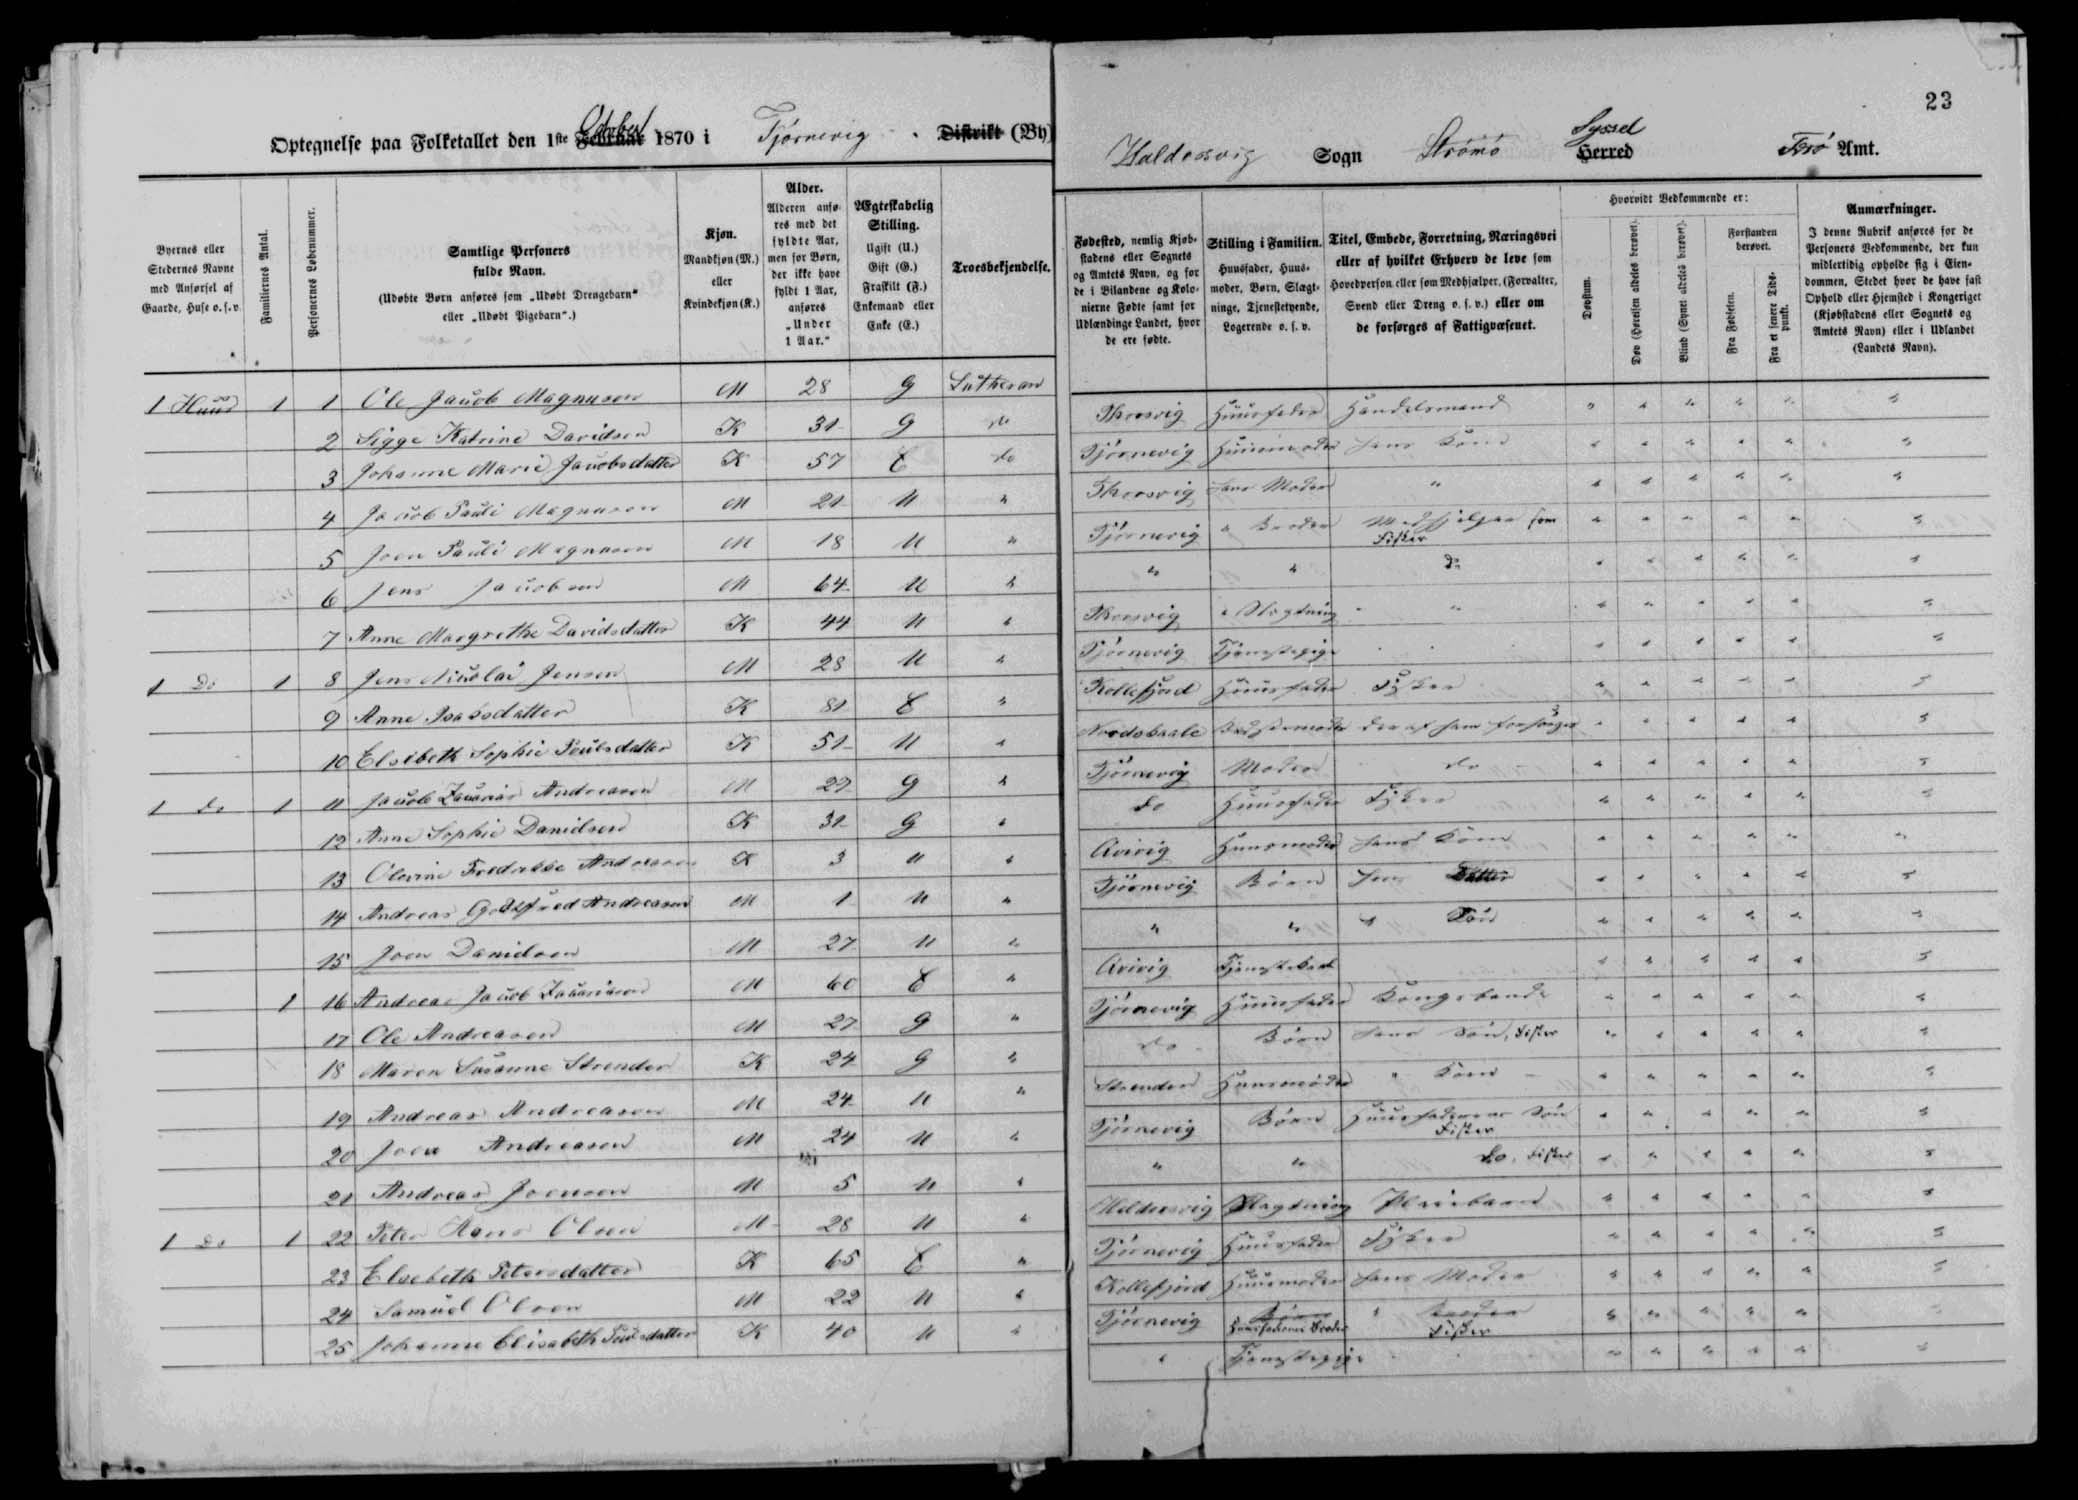 23
Optegnelse paa Folketallet den 1ste Februar October 1870 i Tjørnevig Distrikt (By)
Haldorsvig Sogn Strømø Herred Syssel Færø Amt.
Byernes eller Stedernes Navne med Anførsel af Gaarde, Huse o. s. v.
Familiernes Antal.
Personernes Løbenummer.
Samtlige Personers fulde Navn.
(Udøbte Børn anføres som „Udøbt Drengebarn“ eller „Udøbt Pigebarn“.)
Kjøn. Mandkjøn (M.) eller Kvindekjøn (K.)
Alder. Alderen anføres med det fyldte Aar, men for Børn, der ikke have fyldt 1 Aar, anføres „Under 1 Aar.“
Ægteskabelig Stilling. Ugift (U.) Gift (G.) Fraskilt (F.) Enkemand eller Enke (E.)
Troesbekjendelse.
Fødested, nemlig Kjøbstadens eller Sognets og Amtets Navn, og for de i Bilandene og Kolonierne Fødte samt for Udlændinge Landet, hvor de ere fødte.
Stilling i Familien. Huusfader, Huusmoder, Børn, Slægtninge, Tjenestetyende, Logerende o. s. v.
Titel, Embede, Forretning, Næringsvei eller af hvilket Erhverv de leve som Hovedperson eller som Medhjælper, (Forvalter, Svend eller Dreng o. s. v.) eller om de forsørges af Fattigvæsenet.
Hvorvidt Vedkommende er:
Døvstum.
Døv (Hørelsen aldeles berøvet).
Blind (Synet aldeles berøvet).
Forstanden berøvet.
Fra Fødselen.
Fra et senere Tidspunkt.
Anmærkninger.
I denne Rubrik anføres for de Personers Vedkommende, der kun midlertidig opholde sig i Eiendommen, Stedet hvor de have fast Ophold eller Hjemsted i Kongeriget (Kjøbstadens eller Sognets og Amtets Navn) eller i Udlandet (Landets Navn).
1 Huus 1 1 Ole Jacob Magnusen M 28 G Lutheran Thorsvig Huusfader Handelsmand " " " " " "
2 Sigge Katrine Davidsen K 31 G do Tjørnevig Huusmoder hans Kone " " " " " "
3 Johanne Marie Jacobsdatter K 57 E do Thorsvig hans Moder " " " " " " "
4 Jacob Pauli Magnusen M 21 U " Tjørnevig " Broder Medhjelper som Fisker " " " " " "
5 Joen Pauli Magnusen M 18 U " " " do " " " " " "
6 Jens Jacobsen M 64 U " Thorsvig " Slægtning " " " " " " "
7 Anne Margrethe Davidsdatter K 44 U " Tjørnevig Tjenestepige " " " " " "
1 Do 1 8 Jens Nicolai Jensen M 28 U " Kollefjord Huusfader Fisker " " " " " "
9 Anne Isaksdatter K 81 E " Bedstemoder der af ham forsørges " " " " " "
10 Elsibeth Sophie Poulsdatter K 51 U " Tjørnevig Moder do " " " " " "
1 do 1 11 Jacob Zacarias Andreasen M 27 G " do Huusfader Fisker " " " " " "
12 Anne Sophie Danielsen K 31 G " Qvivig Huusmoder hans Kone " " " " " "
13 Olevine Fredrikke Andreasen K 3 U " Tjørnevig Børn Datter " " " " " "
14 Andreas Godtfred Andreasen M 1 U " " " " Søn " " " " " "
15 Joen Danielsen M 27 U " Qvivig Tjenestekarl " " " " " "
1 16 Andreas Jacob Zacariasen M 60 E " Tjørnevig Huusfader Kongsbonde " " " " " "
17 Ole Andreasen M 27 G " do Børn hans Søn, Fisker " " " " " "
18 Maren Susanne Strender K 24 G " Strender Huusmoder " Kone " " " " " "
19 Andreas Andreasen M 24 U " Tjørnevig Børn Huusfaderens Søn Fisker " " " " " "
20 Joen Andreasen M 24 U " " " do, Fisker " " " " " "
21 Andreas Joensen M 5 U " Haldersvig Slægtning Pleiebarn " " " " " "
1 Do 1 22 Peter Hans Olsen M 28 U " Tjørnevig Huusfader Fisker " " " " " "
23 Elsebeth Petersdatter K 65 E " Kollefjord Huusmoder hans Moder " " " " " "
24 Samuel Olsen M 22 U " Tjørnevig Børn Huusfaderens Broder " Broder Fisker " " " " " "
25 Johanne Elisabeth Poulsdatter K 40 U " " Tjenestepige " " " " " "